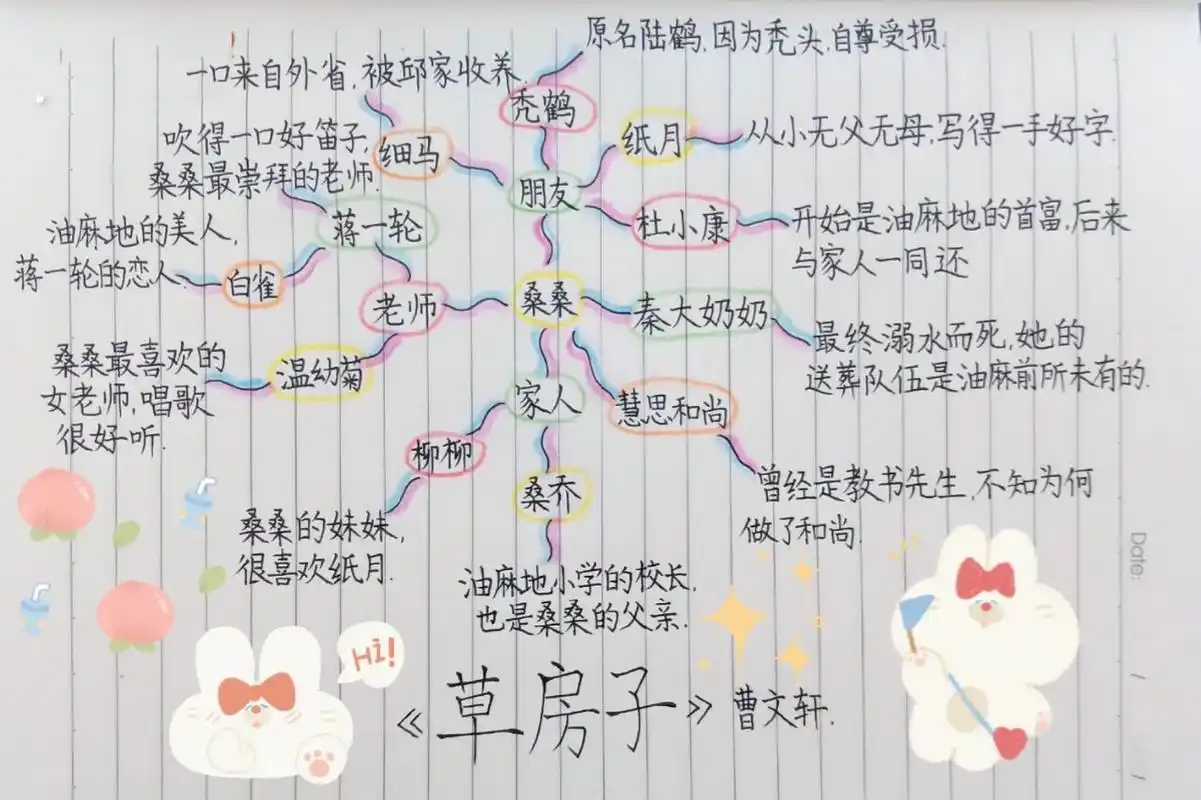 原名陆鹤,因为秃头,自尊受损.
一口来自外省,被邱家收养.
秃鹤
纸月
从小无父无母,写得一手好字.
吹得一口好笛子,
桑桑最崇拜的老师.
细马
朋友
杜小康
开始是油麻地的首富,后来
与家人一同还
油麻地的美人,
蒋一轮的恋人.
蒋一轮
白雀
老师
桑桑
秦大奶奶
最终溺水而死,她的
送葬队伍是油麻前所未有的.
桑桑最喜欢的
女老师,唱歌
很好听.
温幼菊
家人
慧思和尚
柳柳
桑乔
曾经是教书先生,不知为何
做了和尚.
桑桑的妹妹,
很喜欢纸月.
油麻地小学的校长,
也是桑桑的父亲.
Date:
Hi!
《草房子》曹文轩.